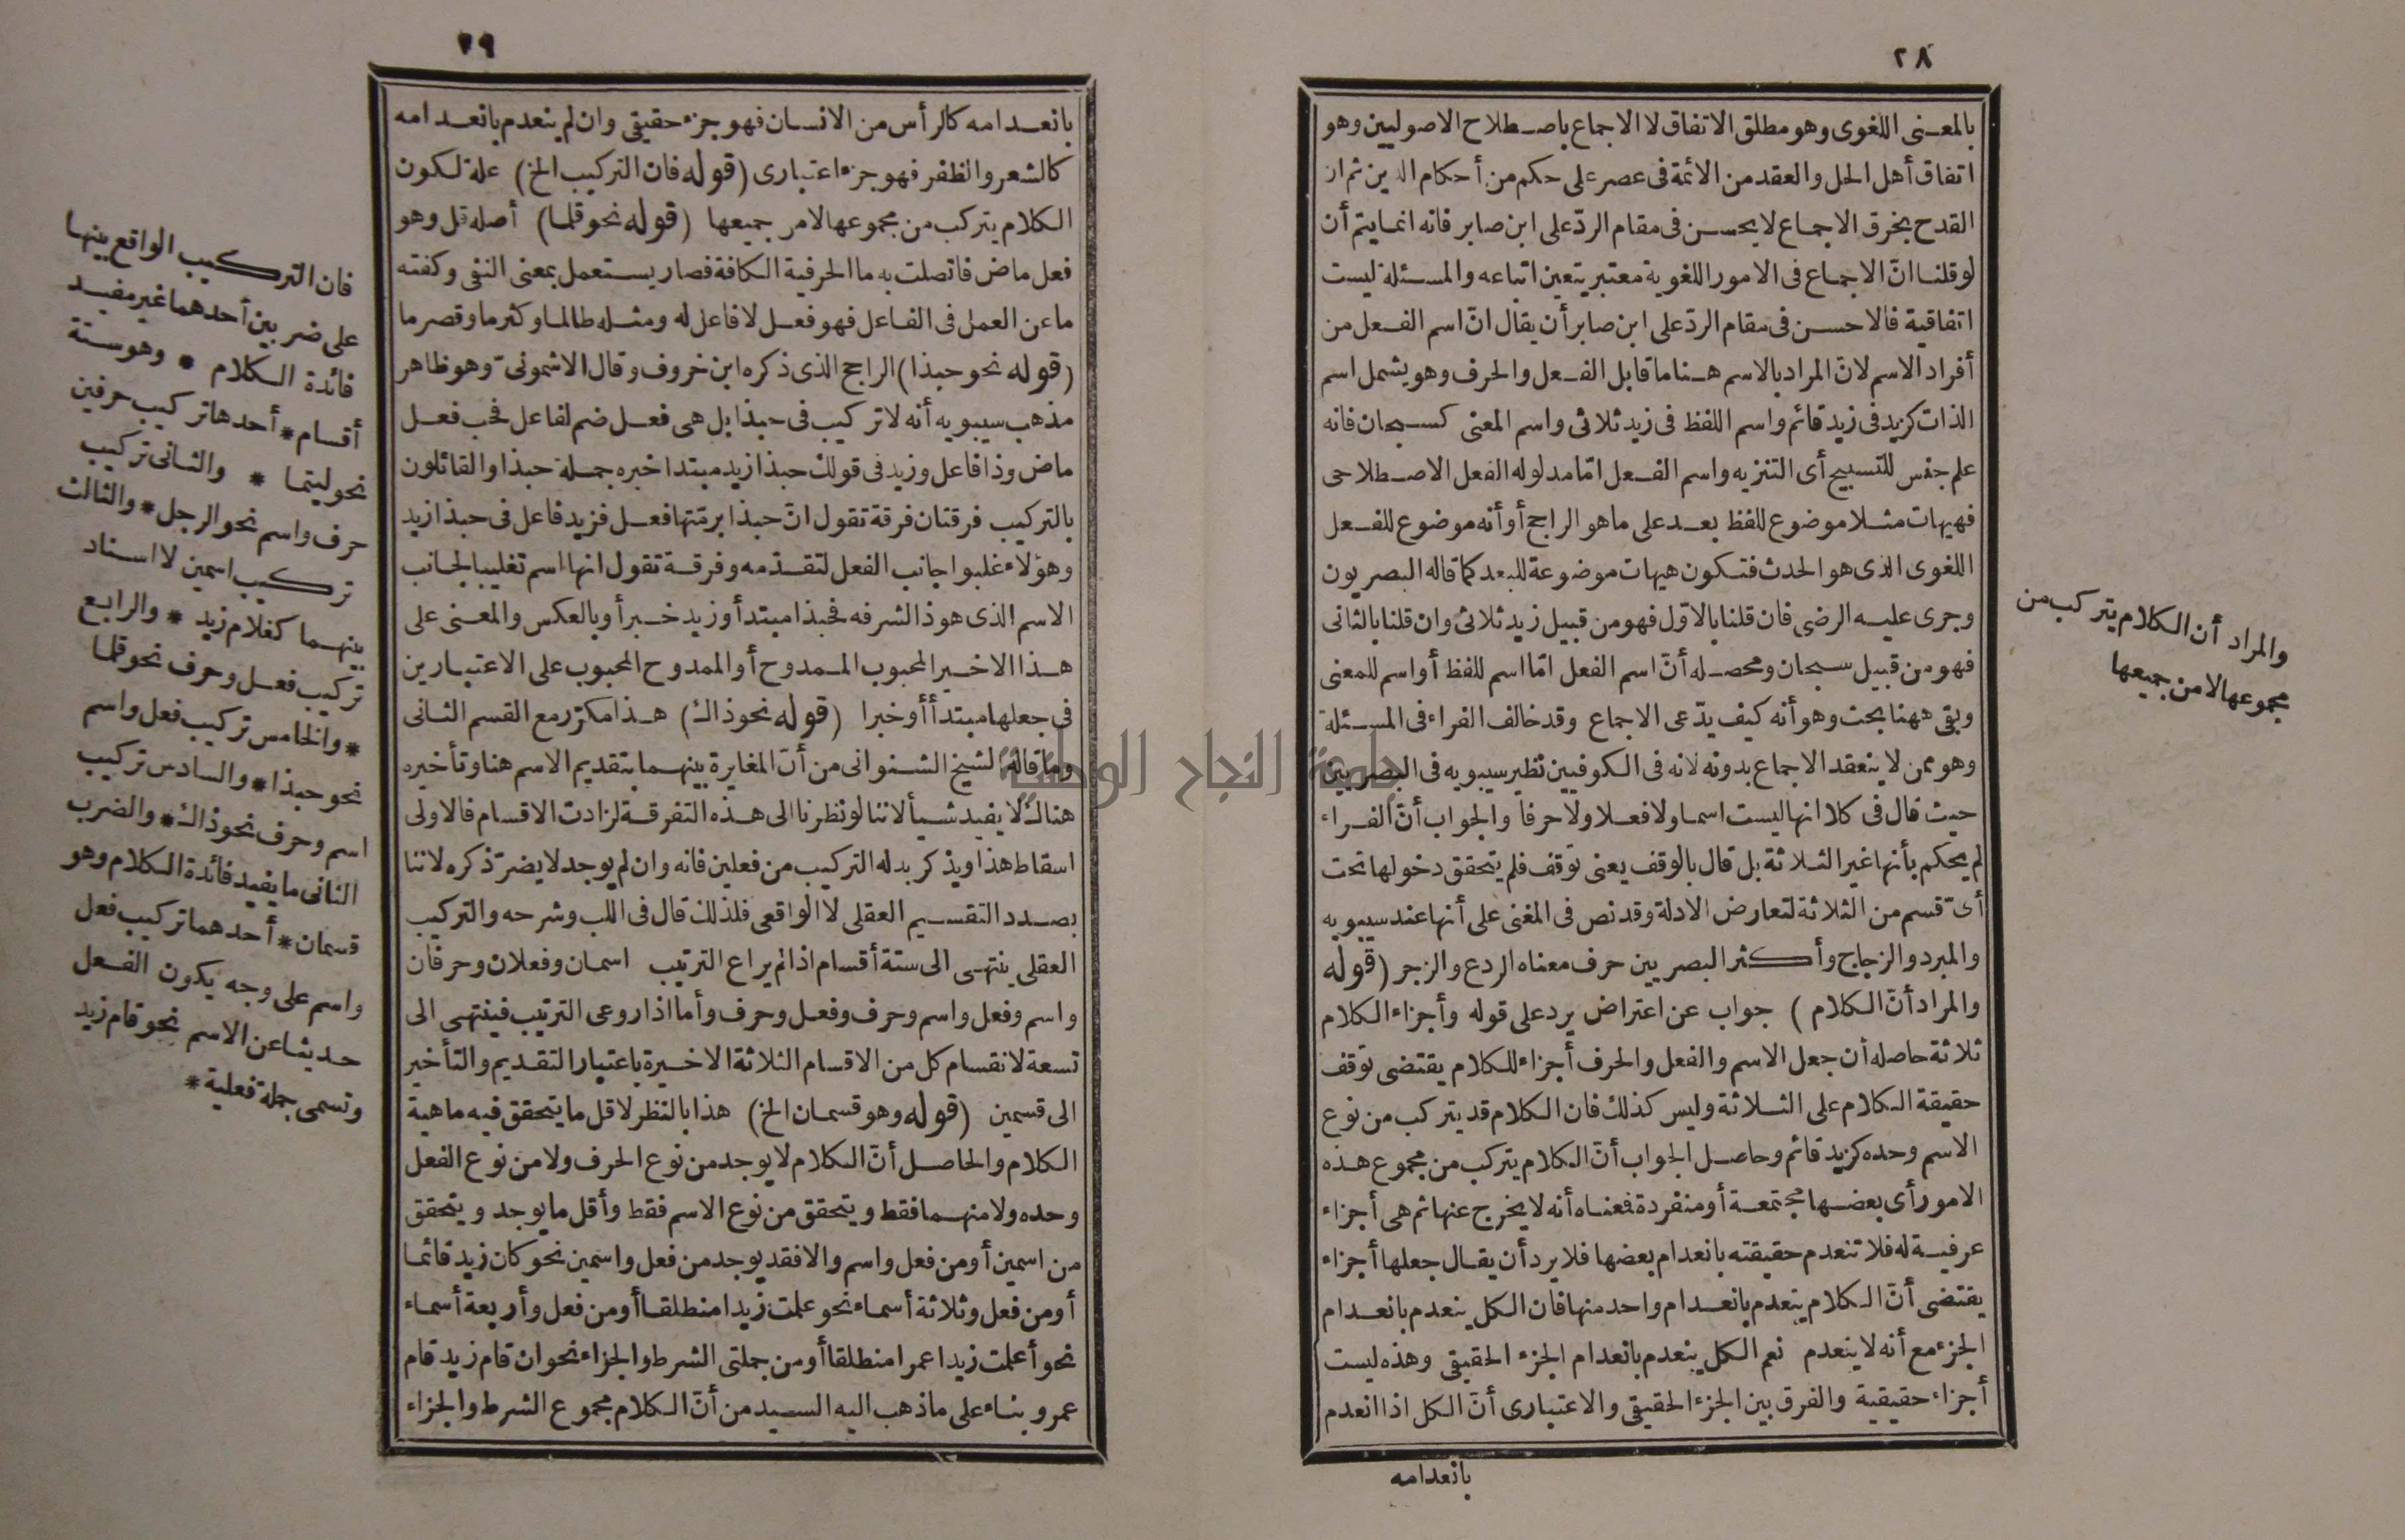 ٢٨
بالمعنى اللغوى وهو مطلق الاتفاق لا الاجماع باصطلاح الاصوليين وهو
اتفاق أهل الحل والعقد من الائمة فى عصر على حكم من أحكام الدين ثم ان
القدح بخرق الاجماع لا يحسن فى مقام الردّ على ابن صابر فانه انما يتم أن
لو قلنا انّ الاجماع فى الامور اللغوية معتبر يتعين اتباعه والمسئلة ليست
اتفاقية فالاحسن فى مقام الردّ على ابن صابر أن يقال انّ اسم الفعل من
أفراد الاسم لانّ المراد بالاسم هنا ما قابل الفعل والحرف وهو يشمل اسم
الذات كزيد فى زيد قائم واسم اللفظ فى زيد ثلاثى واسم المعنى كسبحان فانه
علم جنس للتسبيح أى التنزيه واسم الفعل امّا مدلوله الفعل الاصطلاحى
فهيهات مثلا موضوع للفظ بعد على ما هو الراجح أو أنه موضوع للفعل
اللغوى الذى هو الحدث فتكون هيهات موضوعة للبعد كما قاله البصريون
وجرى عليه الرضى فان قلنا بالاوّل فهو من قبيل زيد ثلاثى وان قلنا بالثانى
فهو من قبيل سبحان ومحصله أنّ اسم الفعل امّا اسم للفظ أو اسم للمعنى
وبقى ههنا بحث وهو أنه كيف يدّعى الاجماع وقد خالف الفراء فى المسئلة
وهو ممن لا ينعقد الاجماع بدونه لانه فى الكوفيين نظير سيبويه فى البصريين
حيث قال فى كلا انها ليست اسما ولا فعلا ولا حرفا والجواب أنّ الفراء
لم يحكم بأنها غير الثلاثة بل قال بالوقف يعنى توقف فلم يتحقق دخولها تحت
أىّ قسم من الثلاثة لتعارض الادلة وقد نص فى المغنى على أنها عند سيبويه
والمبرد والزجاج وأكثر البصريين حرف معناه الردع والزجر (قوله
والمراد أنّ الكلام) جواب عن اعتراض يرد على قوله وأجزاء الكلام
ثلاثة حاصله أن جعل الاسم والفعل والحرف أجزاء للكلام يقتضى توقف
حقيقة الكلام على الثلاثة وليس كذلك فان الكلام قد يتركب من نوع
الاسم وحده كزيد قائم وحاصل الجواب أنّ الكلام يتركب من مجموع هذه
الامور أى بعضها مجتمعة أو منفردة فمعناه أنه لا يخرج عنها ثم هى أجزاء
عرفية له فلا تنعدم حقيقته بانعدام بعضها فلا يرد أن يقال جعلها أجزاء
يقتضى أنّ الكلام ينعدم بانعدام واحد منها فان الكل ينعدم بانعدام
الجزء مع أنه لا ينعدم نعم الكل ينعدم بانعدام الجزء الحقيقى وهذه ليست
أجزاء حقيقية والفرق بين الجزء الحقيقى والاعتبارى أنّ الكل اذا انعدم
بانعدامه
والمراد أن الكلام يتركب من
مجموعها لا من جميعها
٢٩
بانعدامه كالرأس من الانسان فهو جزء حقيقى وان لم ينعدم بانعدامه
كالشعر والظفر فهو جزء اعتبارى (قوله فان التركيب الخ) علة لكون
الكلام يتركب من مجموعها لا من جميعها (قوله نحو قلما) أصله قل وهو
فعل ماض فاتصلت به ما الحرفية الكافة فصار يستعمل بمعنى النفى وكفته
ما عن العمل فى الفاعل فهو فعل لا فاعل له ومثله طالما وكثر ما وقصر ما
(قوله نحو حبذا) الراجح الذى ذكره ابن خروف وقال الاشمونىّ وهو ظاهر
مذهب سيبويه أنه لا تركيب فى حبذا بل هى فعل ضم لفاعل فحب فعل
ماض وذا فاعل وزيد فى قولك حبذا زيد مبتدا خبره جملة حبذا والقائلون
بالتركيب فرقتان فرقة تقول انّ حبذا برمّتها فعل فزيد فاعل فى حبذا زيد
وهؤلاء غلبوا جانب الفعل لتقدّمه وفرقة تقول انها اسم تغليبا لجانب
الاسم الذى هو ذا لشرفه فحبذا مبتدأ وزيد خبرأ وبالعكس والمعنى على
هذا الاخير المحبوب الممدوح أو الممدوح المحبوب على الاعتبارين
فى جعلها مبتدأ أو خبرا (قوله نحو ذاك) هذا مكرّر مع القسم الثانى
وما قاله الشيخ الشنوانى من أنّ المغايرة بينهما بتقديم الاسم هنا وتأخيره
هناك لا يفيد شيأ لاننا لو نظرنا الى هذه التفرقة لزادت الاقسام فالاولى
اسقاط هذا ويذكر بدله التركيب من فعلين فانه وان لم يوجد لا يضرّ ذكره لاننا
بصدد التقسيم العقلى لا الواقعى فلذلك قال فى اللب وشرحه والتركيب
العقلى ينتهى الى ستة أقسام اذا لم يراع الترتيب اسمان وفعلان وحرفان
واسم وفعل واسم وحرف وفعل وحرف وأما اذا روعى الترتيب فينتهى الى
تسعة لانقسام كل من الاقسام الثلاثة الاخيرة باعتبار التقديم والتأخير
الى قسمين (قوله وهو قسمان الخ) هذا بالنظر لاقل ما يتحقق فيه ماهية
الكلام والحاصل أنّ الكلام لا يوجد من نوع الحرف ولا من نوع الفعل
وحده ولا منهما فقط ويتحقق من نوع الاسم فقط وأقل ما يوجد ويتحقق
من اسمين أو من فعل واسم والا فقد يوجد من فعل واسمين نحو كان زيد قائما
أو من فعل وثلاثة أسماء نحو علمت زيدا منطلقا أو من فعل وأربعة أسماء
نحو أعلمت زيدا عمرا منطلقا أو من جملتى الشرط والجزاء نحو ان قام زيد قام
عمرو بناء على ما ذهب اليه السيد من أنّ الكلام مجموع الشرط والجزاء
فان التركيب الواقع بينها
على ضربين أحدهما غير مفيد
فائدة الكلام * وهو ستة
أقسام * أحدها تركيب حرفين
نحو ليتما * والثانى تركيب
حرف واسم نحو الرجل * والثالث
تركيب اسمين لا اسناد
بينهما كغلام زيد * والرابع
تركيب فعل وحرف نحو قلما
* والخامس تركيب فعل واسم
نحو حبذا * والسادس تركيب
اسم وحرف نحو ذاك * والضرب
الثانى ما يفيد فائدة الكلام وهو
قسمان * أحدهما تركيب فعل
واسم على وجه يكون الفعل
حديثا عن الاسم نحو قام زيد
وتسمى جملة فعلية *
جامعة النجاح الوطنية